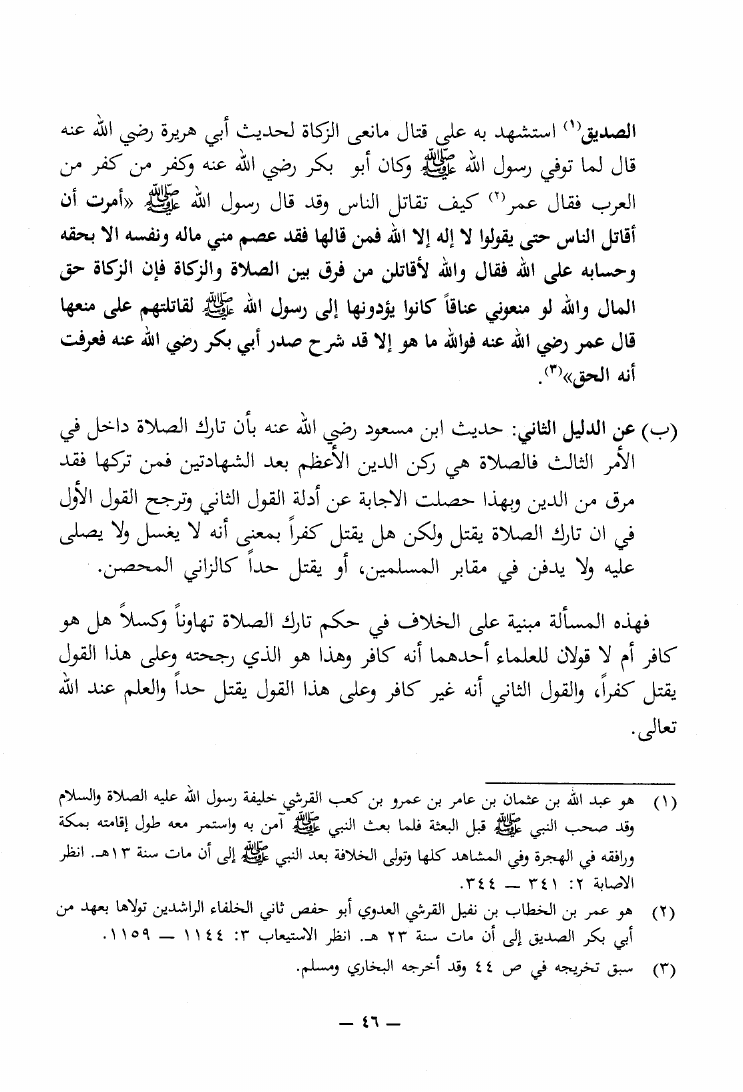 الصديق(١) استشهد به على قتال مانعى الزكاة لحديث أبي هريرة رضي الله عنه
قال لما توفي رسول الله ﷺ وكان أبو بكر رضي الله عنه وكفر من كفر من
العرب فقال عمر(٢) كيف تقاتل الناس وقد قال رسول الله ﷺ «أمرت أن
أقاتل الناس حتى يقولوا لا إله إلا الله فمن قالها فقد عصم مني ماله ونفسه الا بحقه
وحسابه على الله فقال والله لأقاتلن من فرق بين الصلاة والزكاة فإن الزكاة حق
المال والله لو منعوني عناقاً كانوا يؤدونها إلى رسول الله ﷺ لقاتلتهم على منعها
قال عمر رضي الله عنه فوالله ما هو إلا قد شرح صدر أبي بكر رضي الله عنه فعرفت
أنه الحق»(٣).
(ب) عن الدليل الثاني: حديث ابن مسعود رضي الله عنه بأن تارك الصلاة داخل في
الأمر الثالث فالصلاة هي ركن الدين الأعظم بعد الشهادتين فمن تركها فقد
مرق من الدين وبهذا حصلت الاجابة عن أدلة القول الثاني وترجح القول الأول
في ان تارك الصلاة يقتل ولكن هل يقتل كفراً بمعنى أنه لا يغسل ولا يصلى
عليه ولا يدفن في مقابر المسلمين، أو يقتل حداً كالزاني المحصن.
فهذه المسألة مبنية على الخلاف في حكم تارك الصلاة تهاوناً وكسلاً هل هو
كافر أم لا قولان للعلماء أحدهما أنه كافر وهذا هو الذي رجحته وعلى هذا القول
يقتل كفراً، والقول الثاني أنه غير كافر وعلى هذا القول يقتل حداً والعلم عند الله
تعالى.
(١) هو عبد الله بن عثمان بن عامر بن عمرو بن كعب القرشي خليفة رسول الله عليه الصلاة والسلام
وقد صحب النبي ﷺ قبل البعثة فلما بعث النبي ﷺ آمن به واستمر معه طول إقامته بمكة
ورافقه في الهجرة وفي المشاهد كلها وتولى الخلافة بعد النبي ﷺ إلى أن مات سنة ١٣هـ. انظر
الاصابة ٢: ٣٤١ — ٣٤٤.
(٢) هو عمر بن الخطاب بن نفيل القرشي العدوي أبو حفص ثاني الخلفاء الراشدين تولاها بعهد من
أبي بكر الصديق إلى أن مات سنة ٢٣ هـ. انظر الاستيعاب ٣: ١١٤٤ — ١١٥٩.
(٣) سبق تخريجه في ص ٤٤ وقد أخرجه البخاري ومسلم.
— ٤٦ —